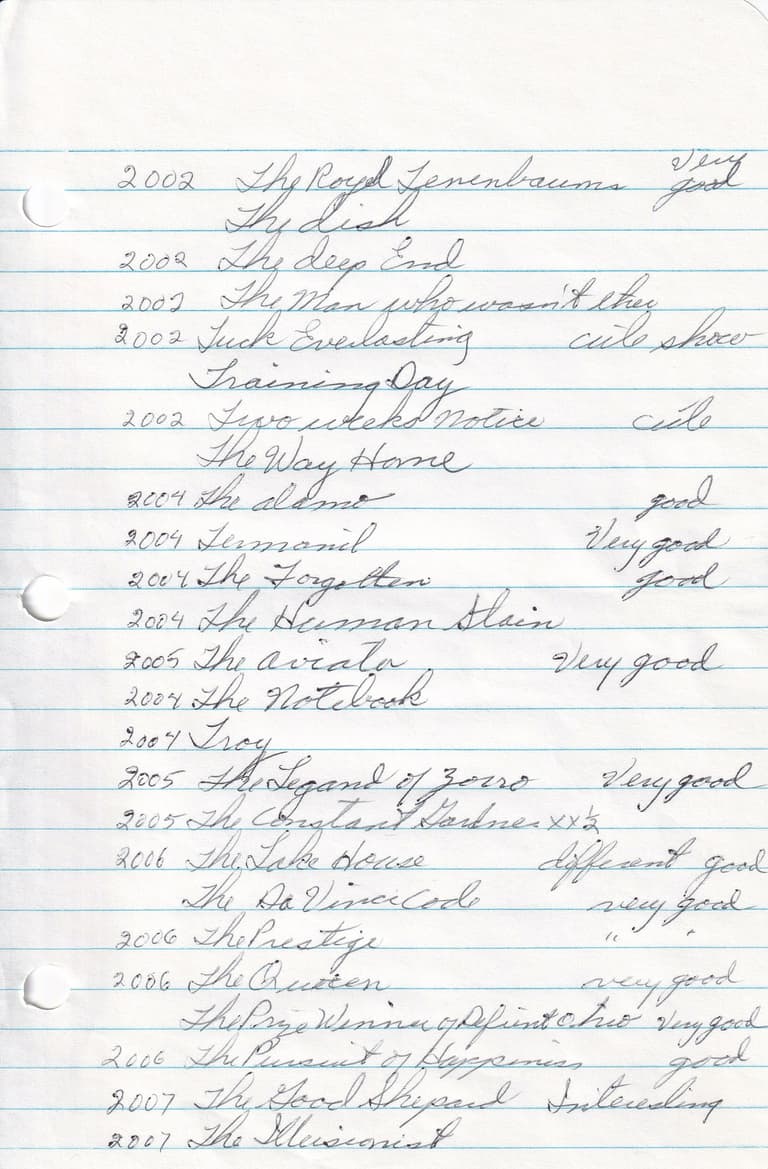 2002 The Royal Tenenbaums very good
The dish
2002 The deep End
2002 The Man who wasn't ther
2002 Tuck Everlasting cute show
Training Day
2002 Two weeks Notice cute
The Way Home
2004 The alamo good
2004 Termanil Very good
2004 The Forgotten good
2004 The Human Stain
2005 The aviator Very good
2004 The Notebook
2004 Troy
2005 The Legand of Zorro Very good
2005 The Constant Gardner xx½
2006 The Lake House different good
The Da Vinci Code very good
2006 The Prestige " "
2006 The Queen very good
The Prize Winner of Defient Ohio Very good
2006 The Pursuit of Happiness good
2007 The Good Shepard Interesting
2007 The Illusionist